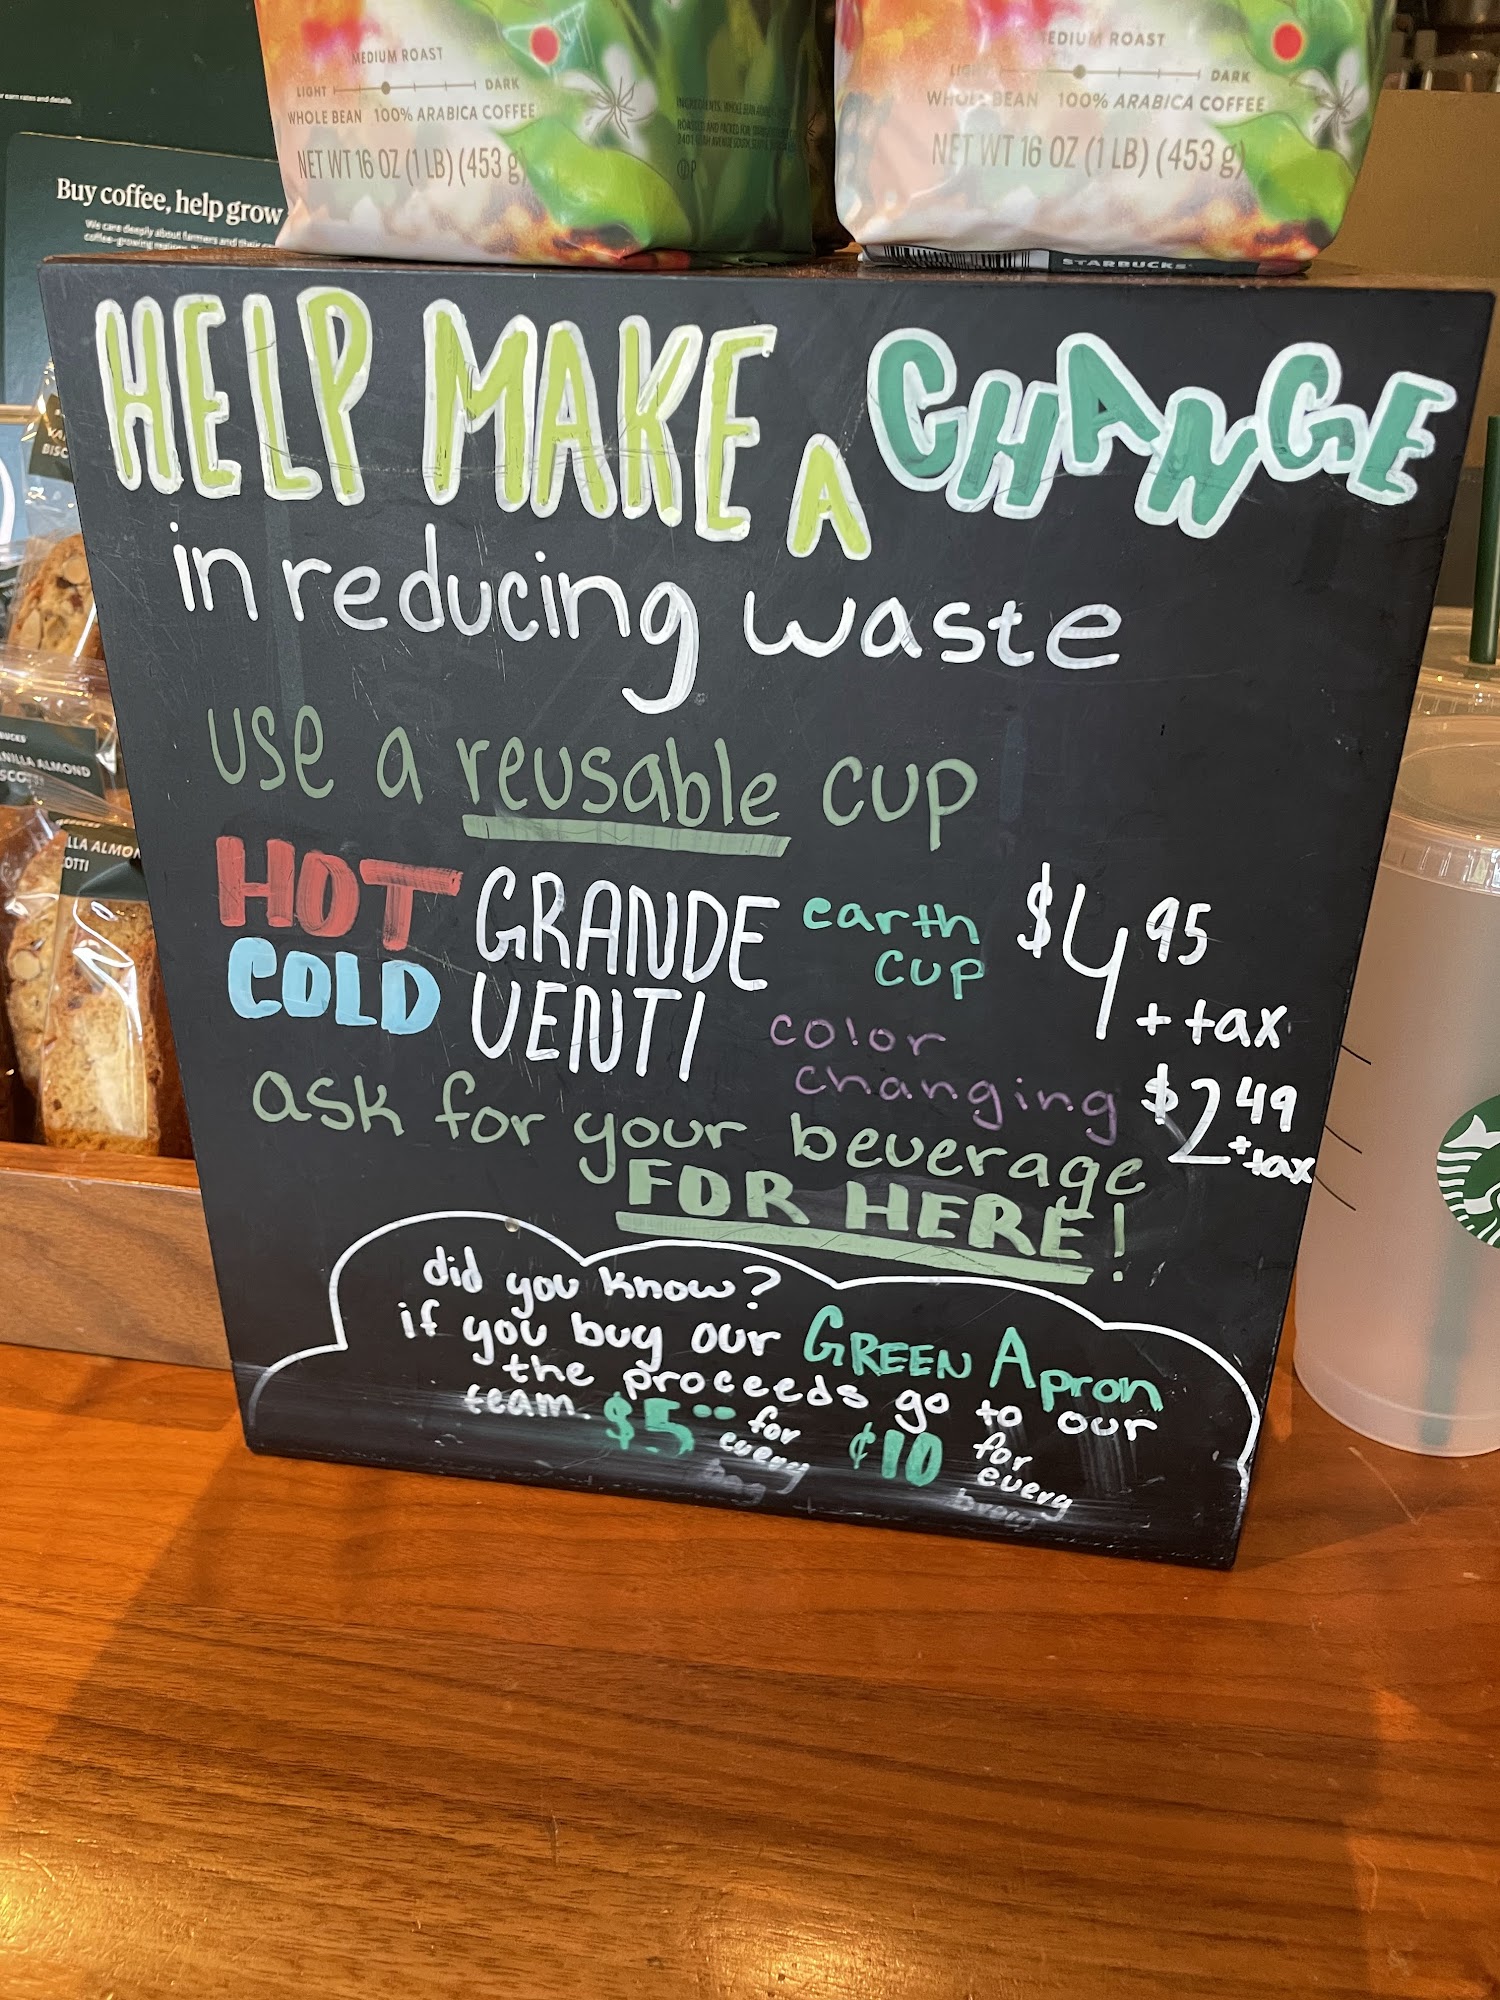 MEDIUM ROAST
LIGHT DARK
WHOLE BEAN 100% ARABICA COFFEE
NET WT 16 OZ (1 LB) (453 g)
MEDIUM ROAST
DARK
WHOLE BEAN 100% ARABICA COFFEE
NET WT 16 OZ (1 LB) (453 g)
STARBUCKS
Buy coffee, help grow
We care deeply about farmers and their
coffee-growing
HELP MAKE A CHANGE
in reducing waste
use a reusable cup
HOT GRANDE earth cup $4.95 + tax
COLD VENTI color changing $2.49 + tax
ask for your beverage
FOR HERE!
did you know?
if you buy our GREEN Apron
the proceeds go to our
team. $5.00 for every bag ¢10 for every
VANILLA ALMOND